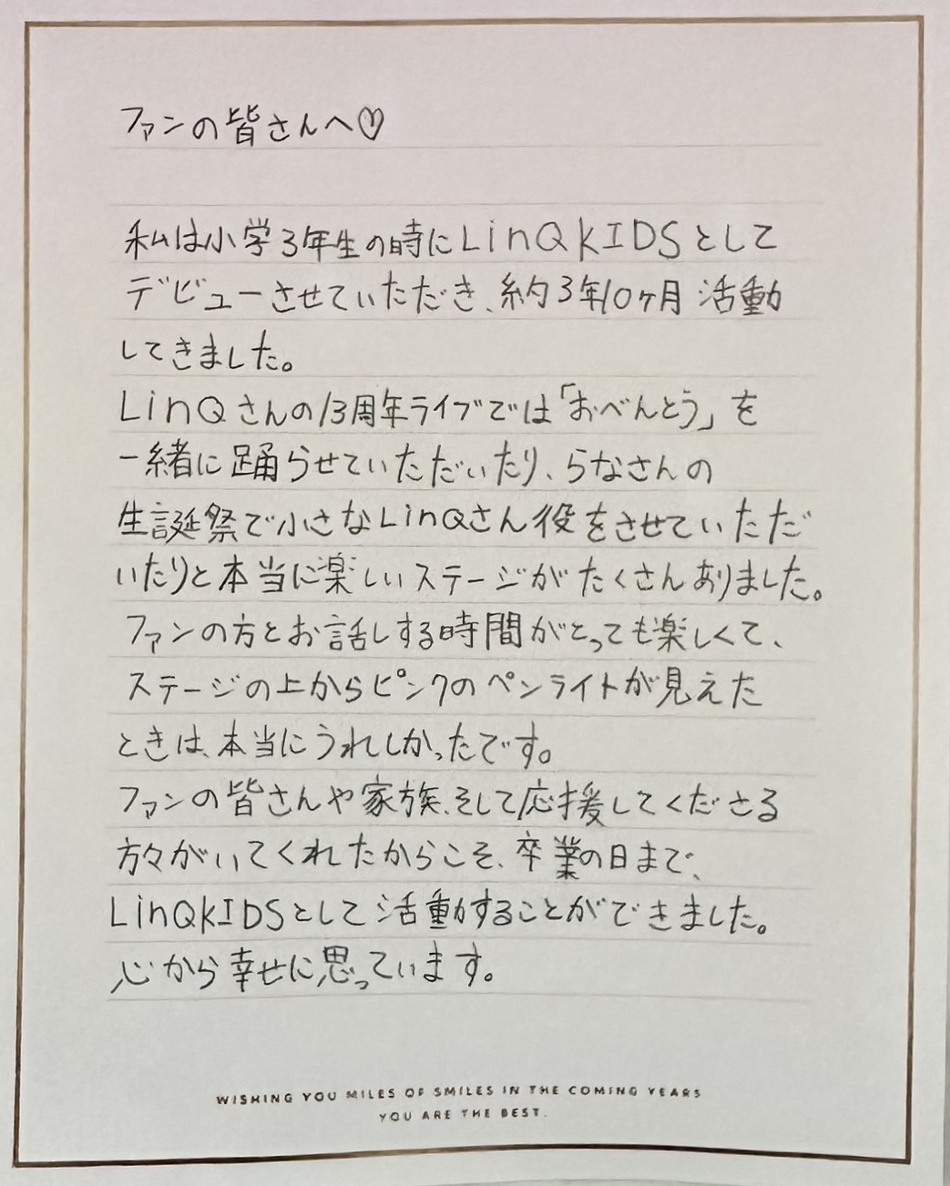 ファンの皆さんへ♡
私は小学3年生の時にLinQ KIDSとして
デビューさせていただき、約3年10ヶ月 活動
してきました。
LinQさんの13周年ライブでは「おべんとう」を
一緒に踊らせていただいたり、らなさんの
生誕祭で小さなLinQさん役をさせていただ
いたりと本当に楽しいステージがたくさんありました。
ファンの方とお話しする時間がとっても楽しくて、
ステージの上からピンクのペンライトが見えた
ときは、本当にうれしかったです。
ファンの皆さんや家族、そして応援してくださる
方々がいてくれたからこそ、卒業の日まで、
LinQ KIDSとして活動することができました。
心から幸せに思っています。
WISHING YOU MILES OF SMILES IN THE COMING YEARS
YOU ARE THE BEST.